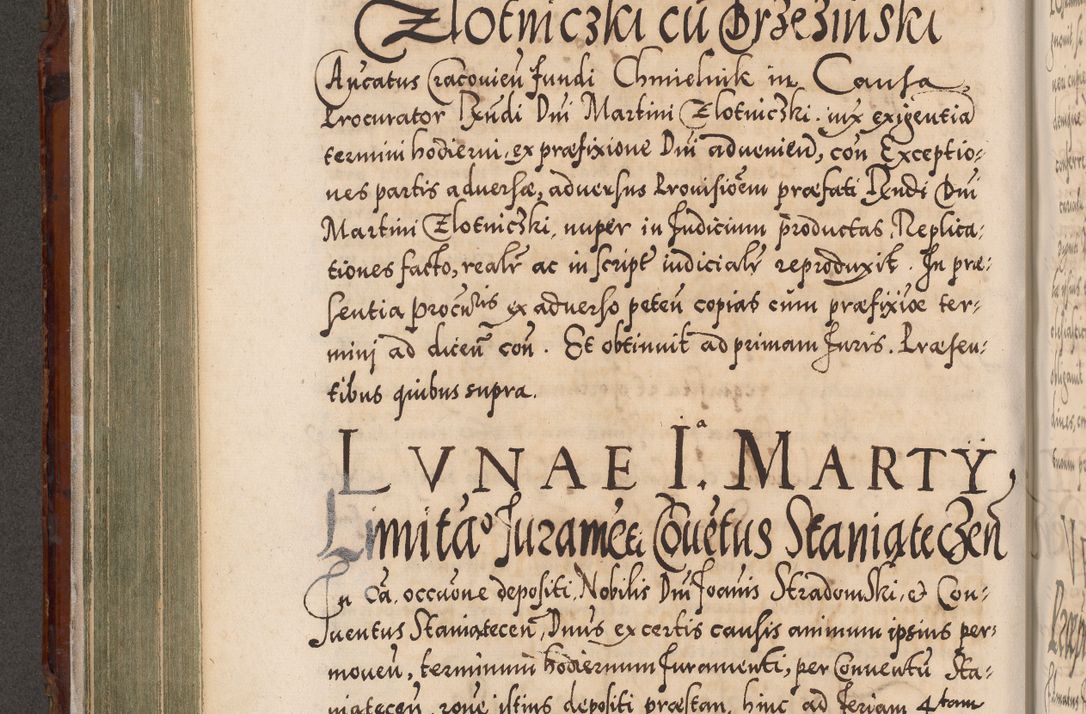 Zlotniczki cū Brzeżinski
Aūcatus Cracovieñ fundi Chmielnik in Causa
Procurator Rñdi Dñi Martini Zlotniczki. iux exigentiā
termini hodierni, ex præfixione Dñi advenieñ, coñ Exceptio⸗
nes partis adversæ, adversus Provisioēm præfati Rñdi Dñi
Martini Zlotniczki, nuper in Judicium productas, Replica⸗
tiones facto, realr̄ ac in script iudicialr̄ reproduxit. In præ⸗
sentia procūris ex adverso peteñ copias cum præfixiōe ter⸗
mini ad diceñ coñ. Et obtinuit ad primam Juris. Præsen⸗
tibus quibus supra.
LVNAE Iª. MARTŸ,
Limitāo Jurameti Coūetus Staniąteczeñ
In Cā, occōne depositi, Nobilis Dñi Joānis Stradomski, et Con⸗
ventus Staniąteceñ, Dnūs ex certis causis animum ipsius per⸗
moveñ, terminum hodiernum Juramenti, per Conventū Sta⸗
niąteceñ, rōne istius depositi præstan, hinc ad feriam 4tam